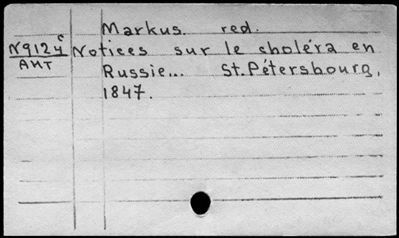 Markus. red.
N9124c Notices sur le choléra en
AHT Russie... St.Pétersbourg,
1847.